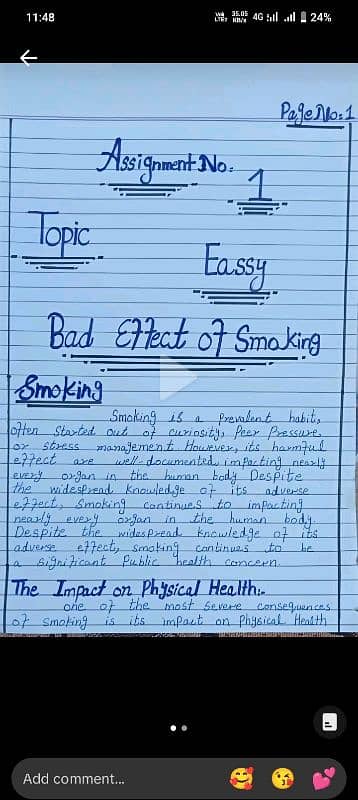 11:48
Vo LTE2 35.05 KB/s 4G 24%
Page No:1
Assignment No:
1
Topic
Eassy
Bad Effect of Smoking
Smoking
Smoking is a Prevalent habit,
often Started out of curiosity, Peer Pressure,
or stress management. However, its harmful
effect are well-documented, impacting nearly
every organ in the human body Despite
the widespread knowledge of its adverse
effect, Smoking continues to impacting
nearly every organ in the human body.
Despite the widespread knowledge of its
adverse effect, smoking continues to be
a significant Public health concern.
The Impact on Physical Health:-
one of the most severe consequences
of smoking is its impact on Physical Health
Add comment...